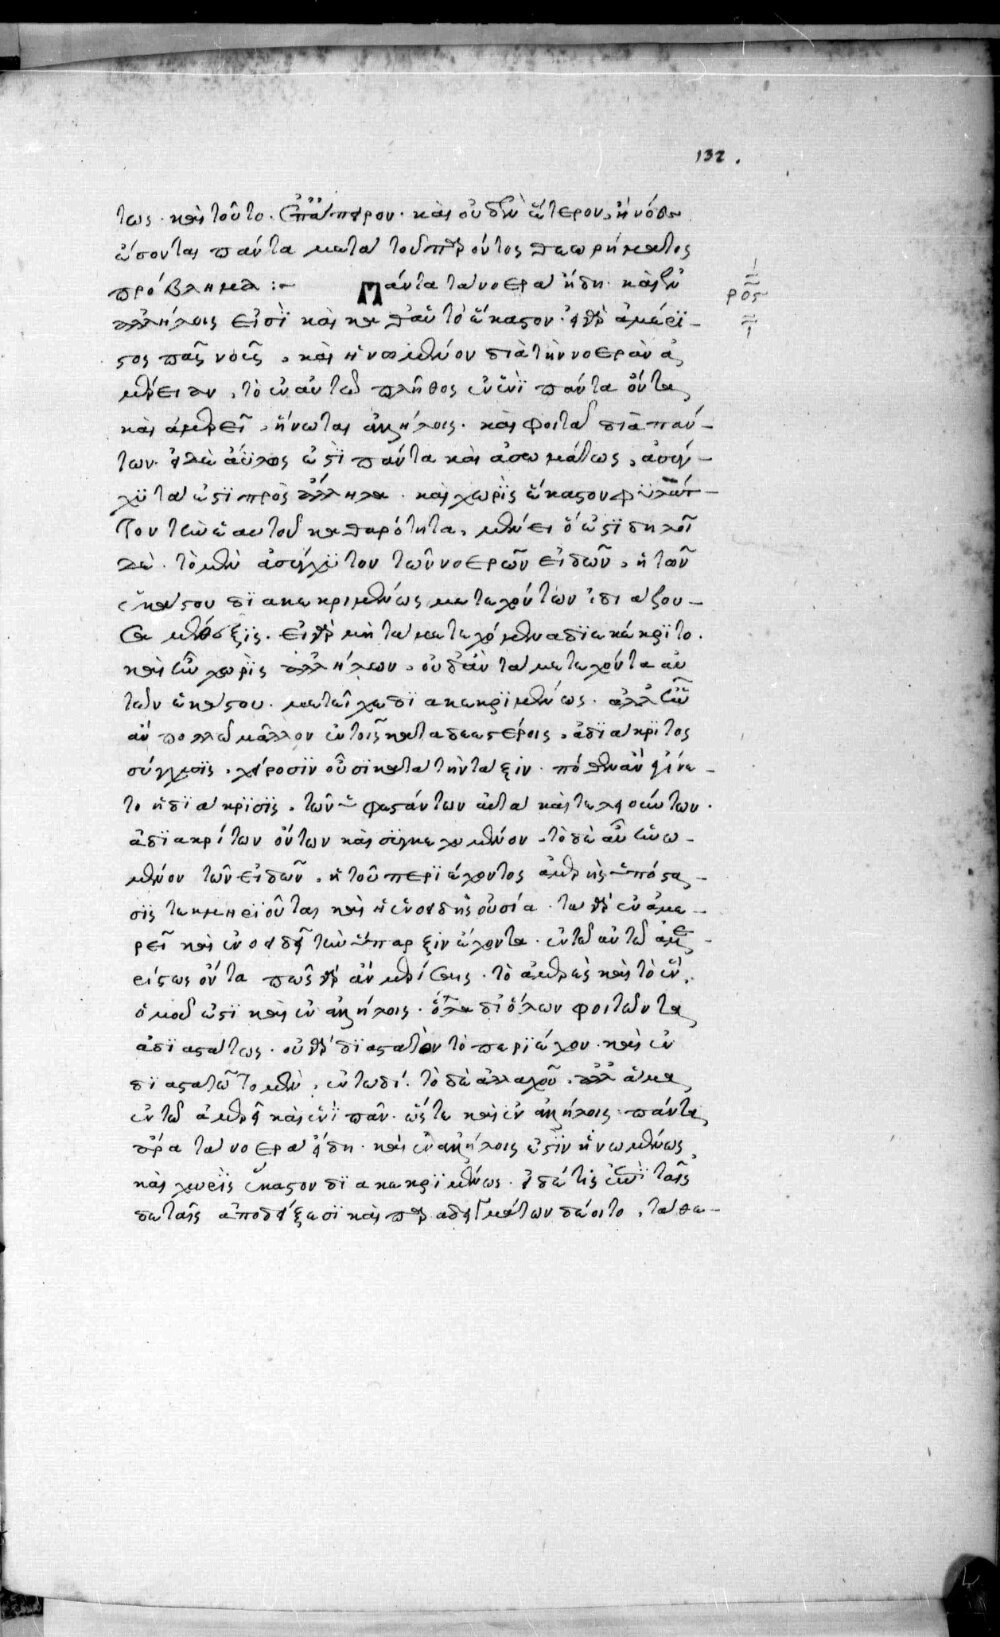 132.
τως · καὶ τοῦτο · ἐπ' ἄπειρον · καὶ οὐδὲν ἕτερον, ἢ νόθα
ἔσονται πάντα μετὰ τοῦ παρόντος θεωρήματος
πρόβλημα :~ Πάντα τὰ νοερὰ εἴδη · καὶ ἐν
ρος
ἀλλήλοις εἰσὶ καὶ καθ' αὑτὸ ἕκαστον · εἰ γὰρ ἀμέρι-
στος πᾶς νοῦς, καὶ ἡνωμένον διὰ τὴν νοερὰν ἀ
μέρειαν, τὸ ἐν αὐτῷ πλῆθος ἐν ἑνὶ πάντα ὄντα
καὶ ἀμερεῖ, ἥνωται ἀλλήλοις · καὶ φοιτᾷ διὰ πάν-
των · εἰ δὲ ἀΰλως ἐστὶ πάντα καὶ ἀσωμάτως, ἀσύγ-
χυτα ἐστὶ πρὸς ἄλληλα · καὶ χωρὶς ἕκαστον φυλάτ-
τον τὴν ἑαυτοῦ καθαρότητα, μένει ὅ ἐστι δηλοῖ
δὲ · τὸ μὲν ἀσύγχυτον τῶν νοερῶν εἰδῶν, ἡ τῶν
ἑκάστου διακεκριμένως μετεχόντων ἰδιάζου-
σα μέθεξις · εἰ γὰρ μὴ τὰ μετεχόμενα διεκέκριτο ·
καὶ ἦν χωρὶς ἀλλήλων, οὐδ' ἂν τὰ μετέχοντα αὐ
τῶν ἑκάστου · μετεῖχε διακεκριμένως · ἀλλ' ἦν
ἂν πολλῷ μᾶλλον ἐν τοῖς καταδεεστέροις, ἀδιάκριτος
σύγχυσις, χείροσιν οὖσι κατὰ τὴν τάξιν · πόθεν ἂν γίνε-
το ἡ διάκρισις, τῶν ὑφιστάντων αὐτὰ καὶ τελειούντων ·
ἀδιακρίτων ὄντων καὶ συγκεχυμένων, τὸ δὲ αὖ ἡνω-
μένον τῶν εἰδῶν, ἡ τοῦ περιέχοντος ἀμερὴς ὑπόστα-
σις τεκμηριοῦται καὶ ἡ ἑνοειδὴς οὐσία · τὰ γὰρ ἐν ἀμε-
ρεῖ καὶ ἑνοειδεῖ τὴν ὕπαρξιν ἔχοντα · ἐν τῷ αὐτῷ ἀμε-
ρίστως ὄντα πῶς γὰρ ἂν μερίσῃς · τὸ ἀμερὲς καὶ τὸ ἕν,
ὁμοῦ ἐστὶ καὶ ἐν ἀλλήλοις · ὅλα δι' ὅλων φοιτῶντα
ἀδιαστάτως · οὐ γὰρ διαστατὸν τὸ περιέχον · καὶ ἐν
διαστατῷ τὸ μὲν, ἐν τῳδὶ · τὸ δὲ ἀλλαχοῦ, ἀλλ' ἅμα
ἐν τῷ ἀμερεῖ καὶ ἑνὶ πᾶν · ὥστε καὶ ἐν ἀλλήλοις · πάντα
ἄρα τὰ νοερὰ εἴδη · καὶ ἐν ἀλλήλοις ἐστὶν ἡνωμένως,
καὶ χωρὶς ἕκαστον διακεκριμένως · εἰ δέ τις ἐπὶ ταῖς
δε ταῖς ἀποδείξεσι καὶ παραδειγμάτων δέοιτο, τὰ θε-